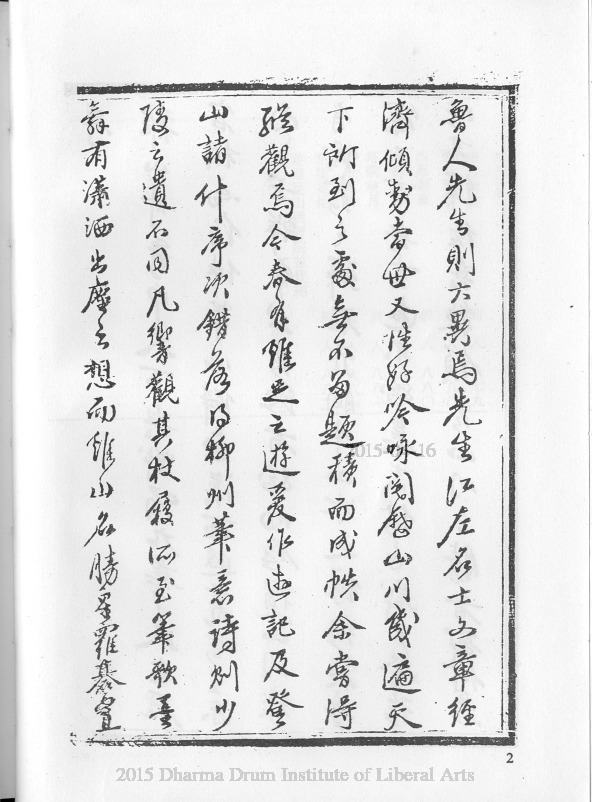 魯人先生則大異焉先生江左名士文章經
濟傾動當世又性好吟咏閱歷山川幾遍天
下所到之處無不留題積而成帙余嘗得
縱觀焉今春有雞足之遊爰作遊記及登
山諸什序次錯落得柳州筆意詩則少
陵之遺不同凡響觀其杖履所至筆歌墨
舞有瀟洒出塵之想而雞山名勝星羅碁置
2015-16
2
2015 Dharma Drum Institute of Liberal Arts